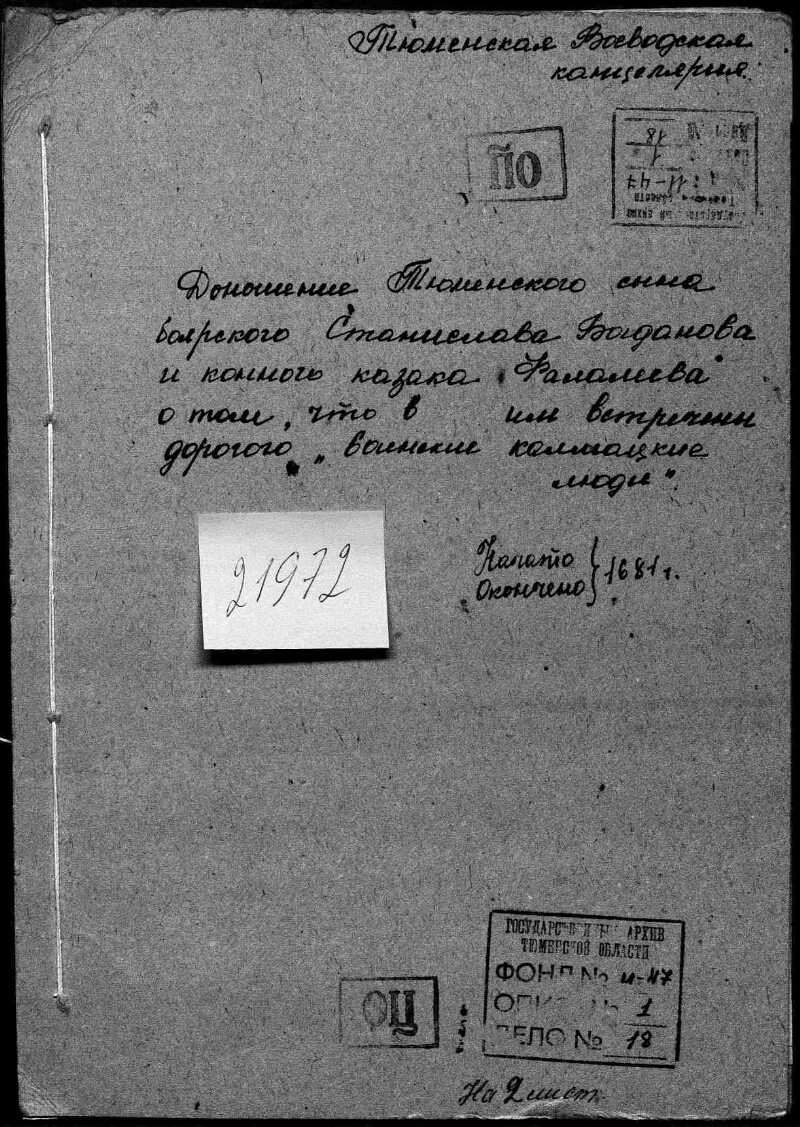 Тюменская Воеводская
канцелярия
ПО
Дело № 18
1
И-47
Тюменской области
Государственный архив
Доношение Тюменского сына
боярского Станислава Багданова
и конного казака Фалалеева
о том, что в им встречены
дорогого „воинские калмацкие
люди".
21972
Начато
Окончено } 1681 г.
ГОСУДАРСТВЕННЫЙ АРХИВ
ТЮМЕНСКОЙ ОБЛАСТИ
ФОНД № и-47
ОПИСЬ 1
ДЕЛО № 18
ОЦ
На 2 лист.